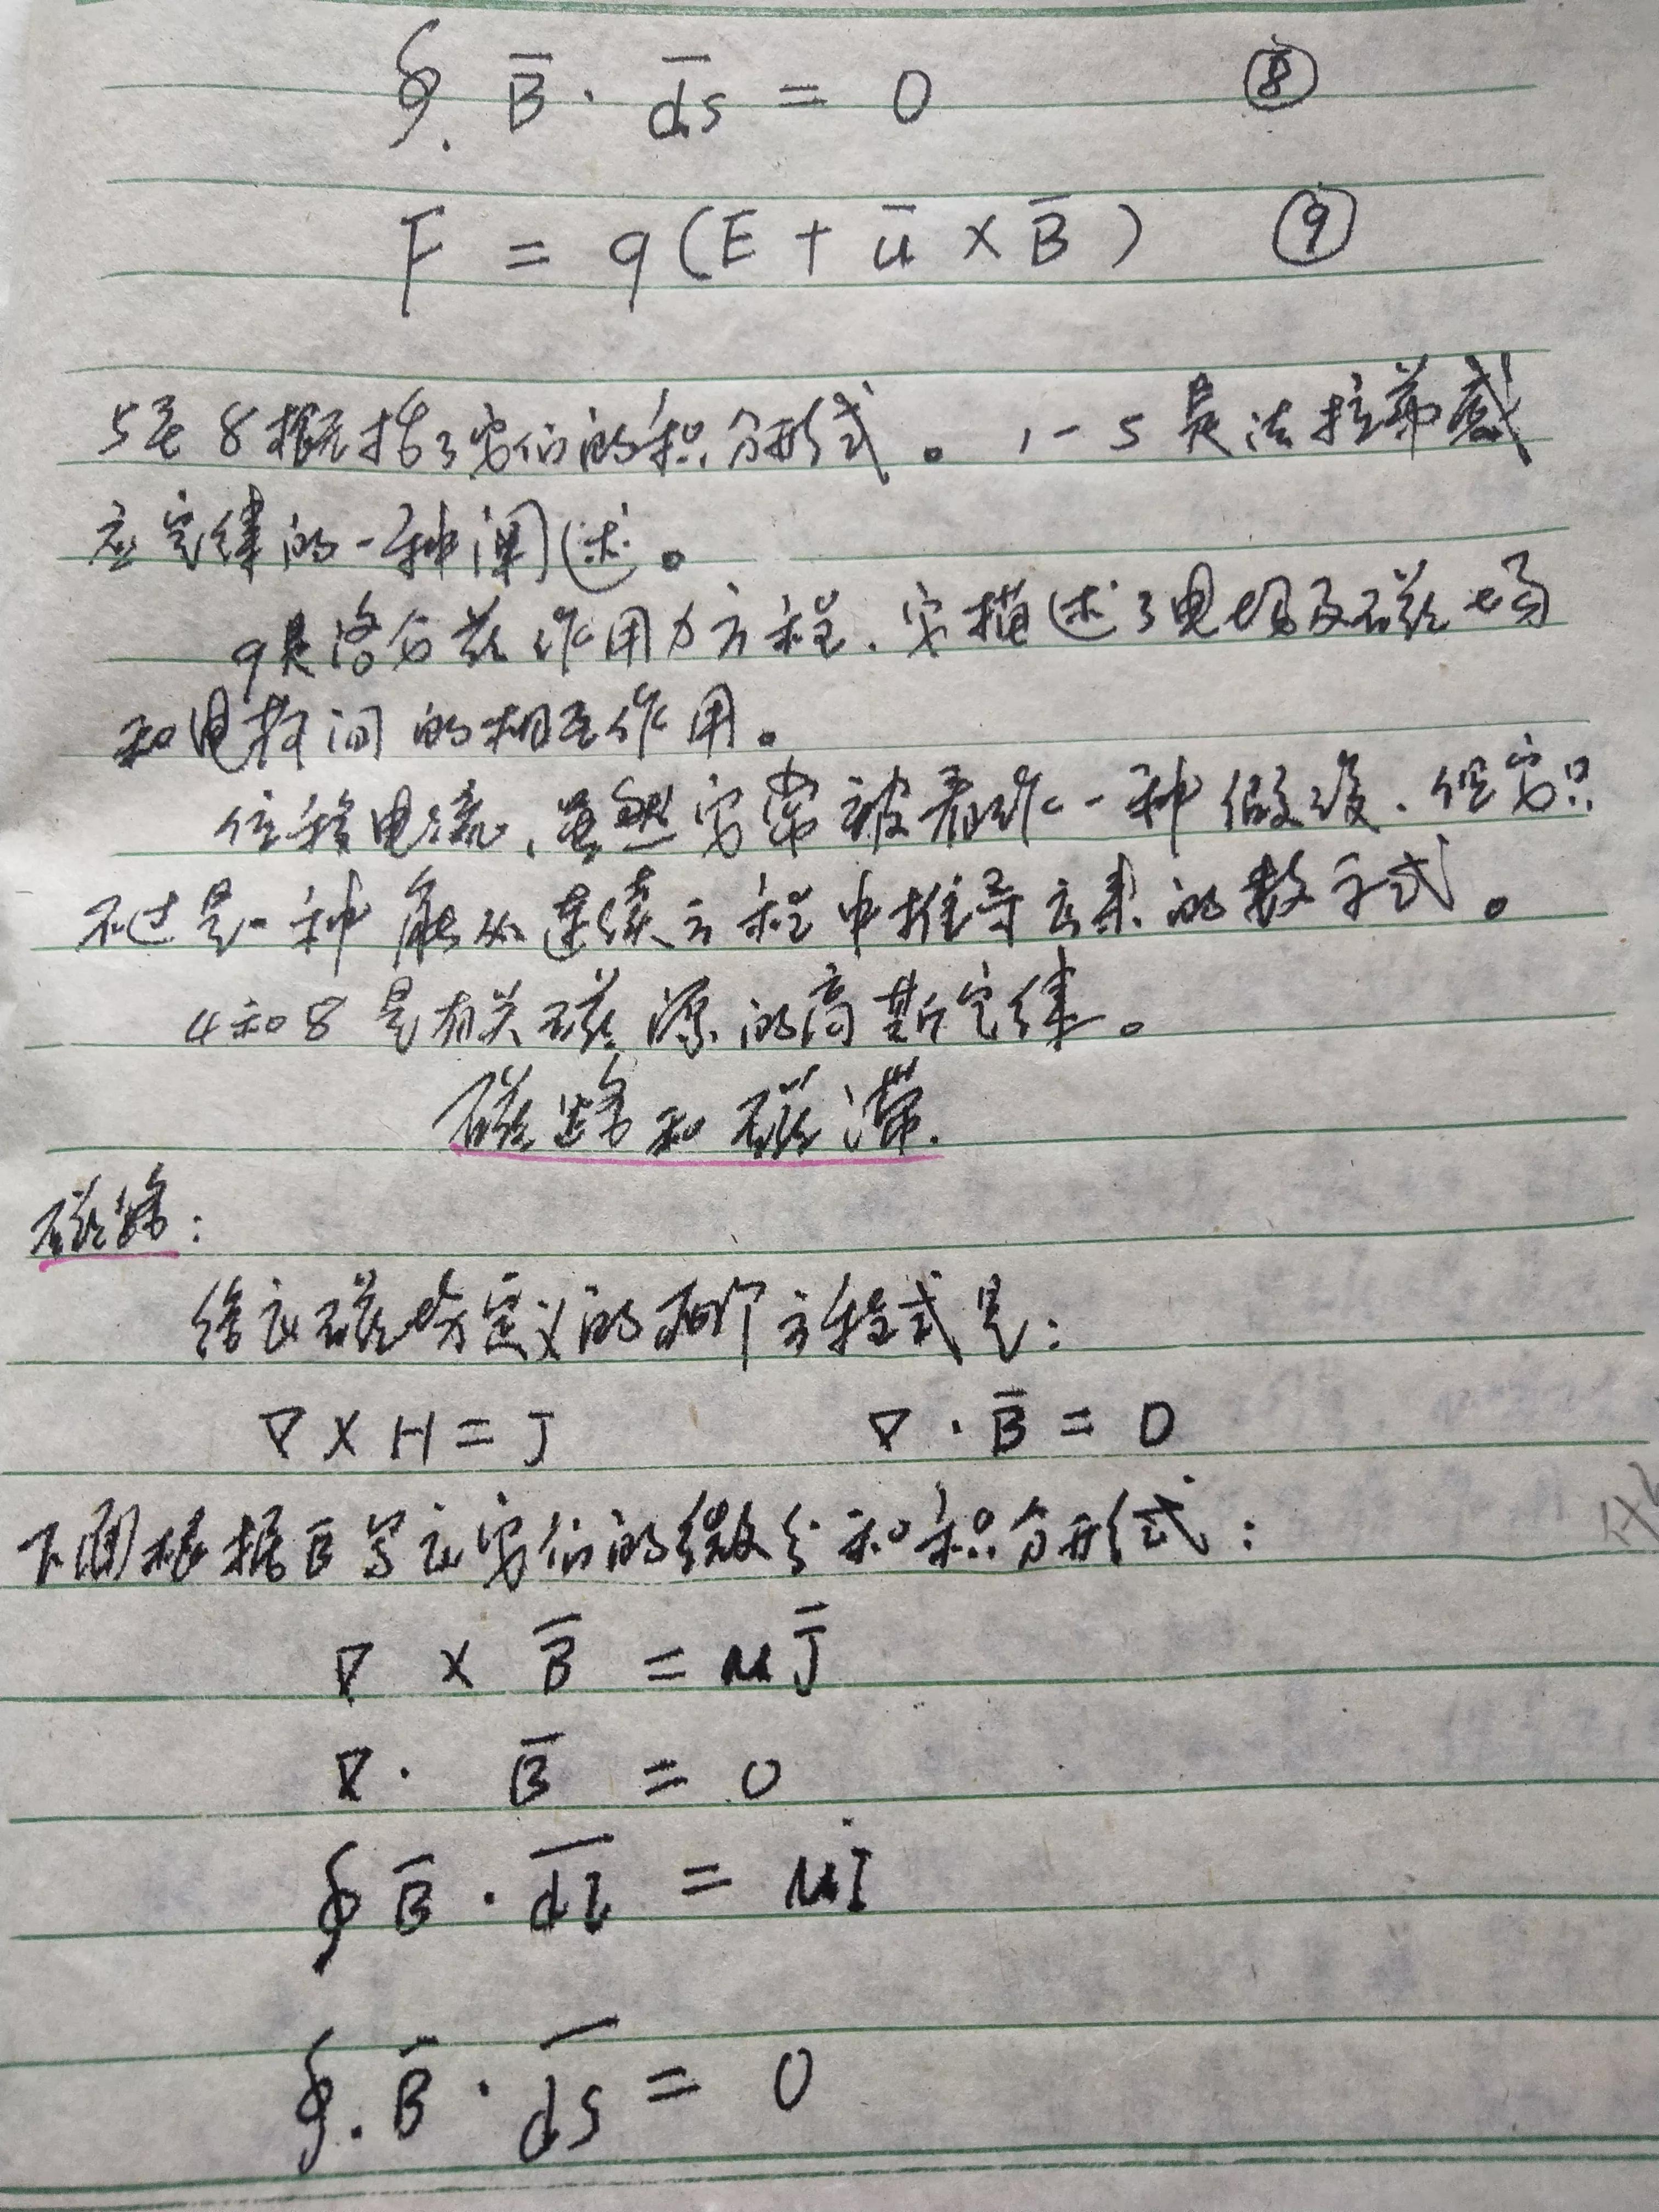 ∮. B̄ · d̄s = 0 ⑧
F = q(E + ū × B̄) ⑨
5至8概括了它们的积分形式。1-5是法拉第感
应定律的一种阐述。
9是洛仑兹作用力方程.它描述了电场及磁场
和电荷间的相互作用。
位移电流,虽然它常被看作一种假设.但它只
不过是一种能从连续方程中推导出来的数学式。
4和8是有关磁源的高斯定律。
磁路和磁滞.
磁路:
给出磁场定义的两个方程式是:
∇×H=J ∇·B̄=0
下面根据B写出它们的微分和积分形式:
∇ × B̄ = μJ̄
∇· B̄ = 0
∮B̄·d̄l̄ = μI
∮.B̄·d̄s̄ = 0